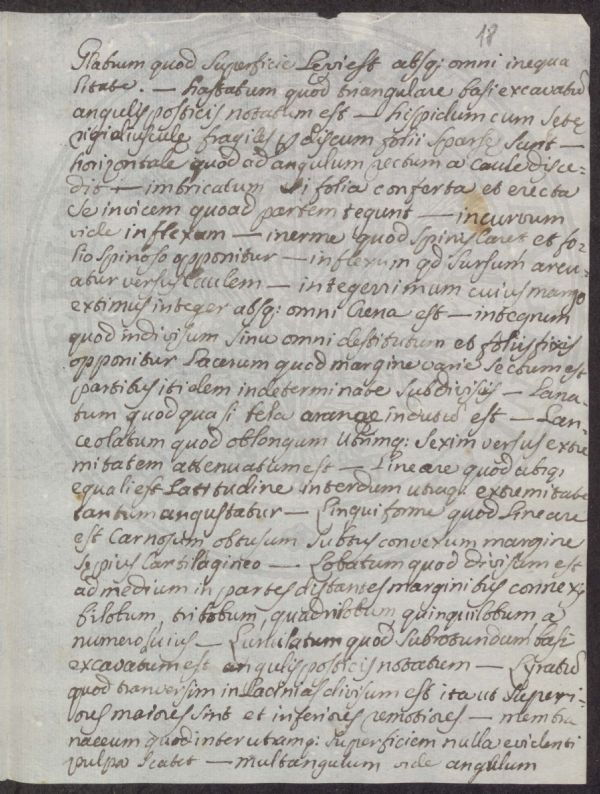 18
Glabrum quod superficie Levi est absq; omni inequa
litate. — hastatum quod triangulare basi excavatū
angulis posticis notatum est — hispidum cum sete
rigidiuscule fragiles p discum folii sparse sunt —
horizontale quod ad angulum rectum a caule disce=
dit — imbricatum si folia conferta et erecta
se invicem quoad partem tegunt — incurvum
vide inflexum — inerme quod spinis caret et fo=
lio spinoso opponitur — inflexum qd sursum arcu=
atur versus caulem — integerrimum cuius margo
extimus integer absq; omni crena est — integrum
quod indivisum sinu omni destitutum et foliis fissis
opponitur Lacerum quod margine varie sectum est
partibus itidem indeterminate subdivisis — Lana
tum quod quasi tela araneae indutū est — Lan=
ceolatum quod oblongum utrimq; sexim versus extre
mitatem attenuatum est — Lineare quod ubiq;
equali est Latitudine interdum utraq; extremitate
tantum angustatur — Linguiforme quod Lineare
est Carnosum obtusum subtus convexum margine
sepius Cartilagineo — Lobatum quod divisum est
ad medium in partes distantes marginibus connexis
bilobum, trilobum, quadrilobum quinquilobum a
numero huius — Lunulatum quod subrotundum basi
excavatum est angulis posticis notatum — Lyratū
quod tranversim in Lacinias divisum est ita ut superi=
ores maiores sint et inferiores remotiores — membra
naceum quod inter utramq; superficiem nulla evidenti
pulpa scatet — multangulum vide angulum